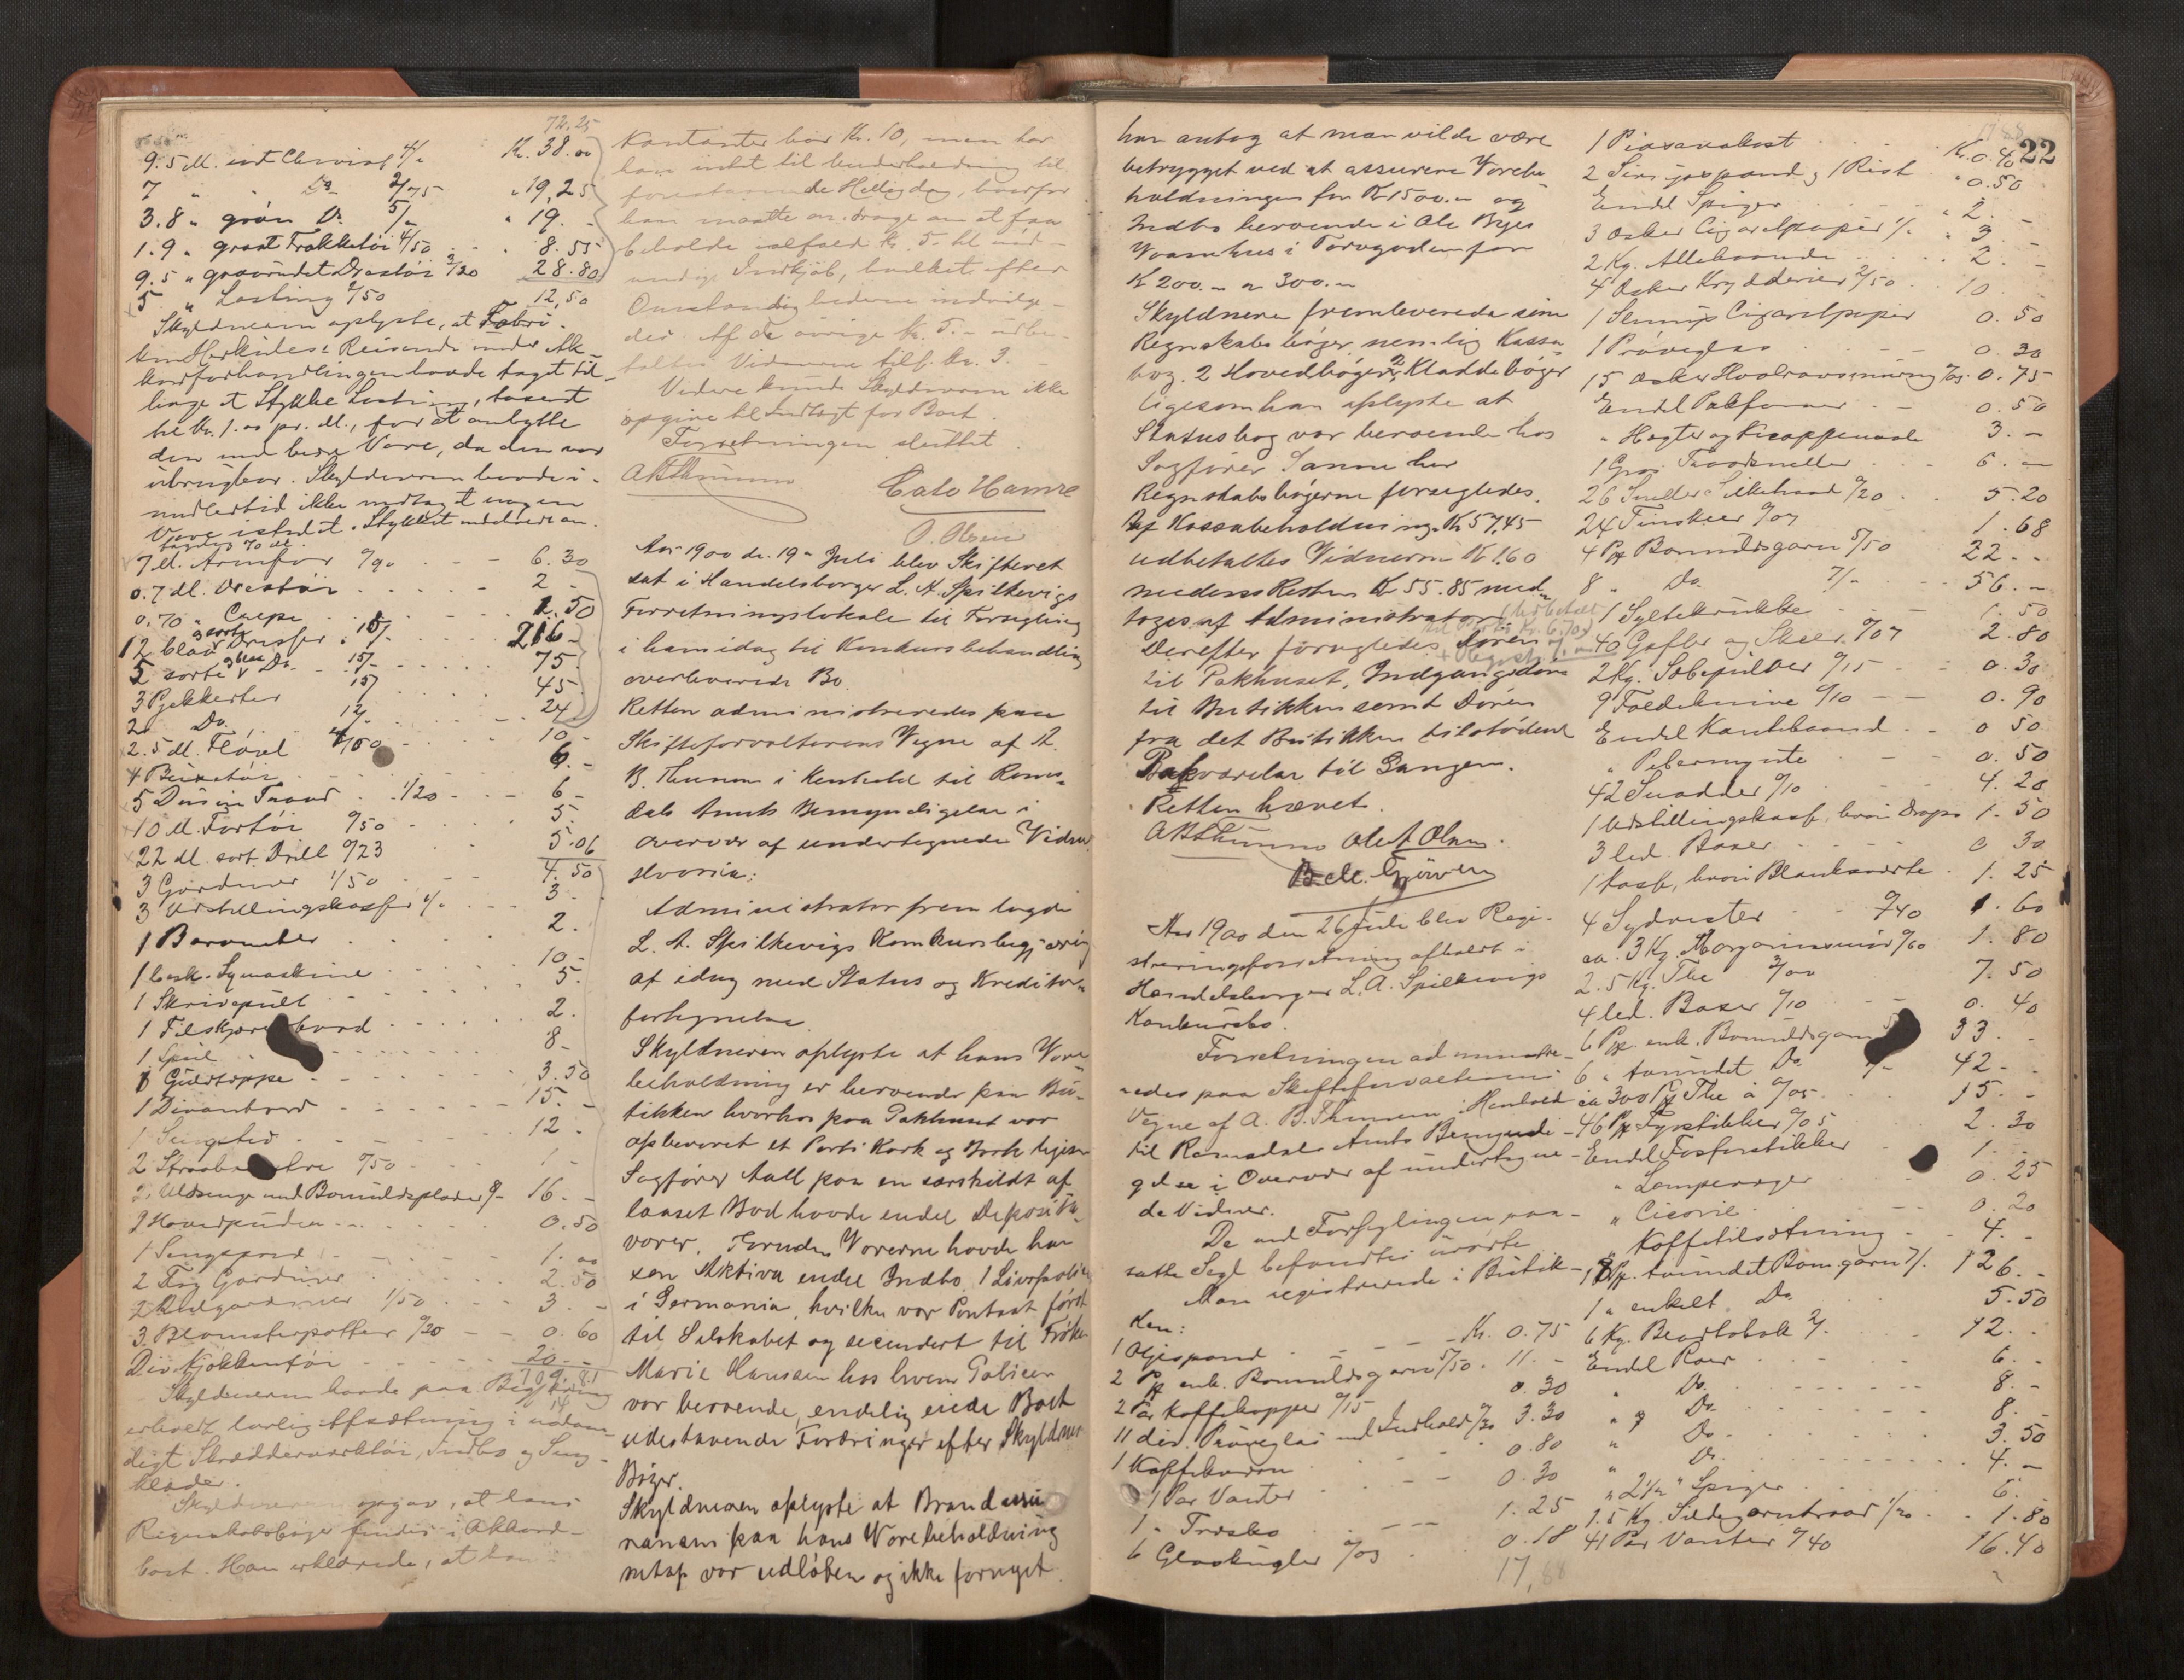 72.25
9.5 M. 4/- Kr. 38.00
7 " " Do 2/75 " 19,25
3.8 " grøn Do 5/- " 19.-
1.9 " graat Frakketøi 4/50 8.55
9.5 " Drestøi 3/20 28.80
5 " Lasting 2/50 12,50
Skyldneren oplyste, at Fabri-
ken Herkules's Reisende under Ak-
kordforhandlingen havde taget til-
bage et Stykke Lasting, taxeret
til Kr. 1.00 pr. M., for at ombytte
den med bedre Vare, da den var
ubrugbar. Skyldneren havde i-
midlertid ikke modtaget nogen
Vare istedet. Stykket
7 M. Armfor 0/90 6.30
0.7 M. Drestøi 2.-
0.70 " Crepe 1.50
12 blaa & sorte Dresser 18/- 216.-
5 sorte & blaa Do. 15/- 75.-
3 Pjekkerter 15/ 45.-
2 Do. 12/- 24.-
2.5 M. Fløiel 4/- 10.-
4 Buxetøi 1/50 6.-
5 Dusin Traad 1/20 6.-
10 M. Fortøi 0/50 5.-
22 M. sort Drill 0/23 5.06
3 Gardiner 1/50 4.50
3 Udstillingskasser 1/- 3.-
1 Barometer 2.
1 besk. Symaskine 10.-
1 Skrivepult 5.
1 Tilskjærerbord 2.
1 Speil 8-
Gulvtæppe 3.50
1 Divanbord 15.-
1 Sengsted 12.-
2 0/50 1.-
2 Uldsenge med Bomuldsplader 8/- 16.-
2 Hovedpuder 0.50
1 Sengespred 1.00
2 Fag Gardiner 2.50
2 Rulgardiner 1/50 3.-
3 Blomsterpotter 0/20 0.60
Div. Kjøkkentøi 20.-
Skyldneren havde paa Begjæring
erholdt lovlig Afsætning i nødven-
digt Skrædderværktøi, Indbo og Seng-
klæder.
Skyldneren opgav, at hans
Regnskabsbøger findes i Akkord-
boet. Han erklærede, at han
Kontanter har Kr. 10, men har
han intet til Underholdning til
forestaaende Helligdag, hvorfor
han maatte andrage om at faa
beholde ialfald Kr. 5.- til nød-
vendige Indkjøb, hvilket efter
Omstændighederne indvilge-
des. Af de øvrige Kr. 5.- udbe-
taltes Vidnerne tils. Kr. 3.-
Videre kunde Skyldneren ikke
opgive til Indtægt for Boet.
Forretningen sluttet.
ABThunem
Cato Hamre
O. Olsen
Aar 1900 den 19de Juli blev Skifteret
sat i Handelsborger L. A. Spilkevigs
Forretningslokale til Forsegling
i hans idag til Konkursbehandling
overleverede Bo.
Retten administreredes paa
Skifteforvalterens Vegne af A.
B. Thunem i Henhold til Roms-
dals Amts Bemyndigelse i
Overvær af undertegnede Vidner
Hvoria:
Administrator fremlagde
L. A. Spilkevigs Konkursbegjæring
af idag med Status og Kreditor-
fortegnelse.
Skyldneren oplyste at hans Vare-
beholdning er beroende paa Bu-
tikken hvorhos paa Pakhuset var
opbevaret et Parti Kork og Bork ligesom
Sagfører Aall paa en særskildt af-
laaset Bod havde endel Deposita-
varer. Foruden Varerne havde han
som Aktiva endel Indbo, 1 Livspolice
i Germania, hvilken var Pantsat først
til Selskabet og secundert til Frøken
Marie Hanssen hos hvem Policen
var beroende, endelig eiede Boet
udestaaende Fordringer efter Skyldners
Bøger.
Skyldneren oplyste at Brandassu-
ransen paa hans Varebeholdning
netop var udløben og ikke fornyet.
han antog at man vilde være
betrygget ved at assurere Varebe-
holdningen for Kr 1500.- og
Indbo beroende i Ole Byes
Vaanehus i Torvgaden for
Kr 200.- a 300.-
Skyldneren fremleverede sine
Regnskabsbøger nemlig Kassa-
bog, 2 Hovedbøger, 2 Kladdebøger
ligesom han oplyste at
Statusbog var beroende hos
Sagfører Sanne her
Regnskabsbøgerne forsegledes.
Af Kassabeholdning Kr 57.45
udbetaltes Vidnerne Kr 1.60
medens Resten Kr 55.85 mod-
toges af Administrator
Derefter forsegledes Døren
til Pakhuset, Indgangsdøren
til Butikken samt Døren
fra det Butikken tilstødende
Bakværelse til Gangen.
Retten hævet.
ABThunem Ole A Olsen.
B. M. Gjørven
Aar 1900 den 26 Juli blev Regi-
streringsforretning afholdt i
Handelsborger L. A. Spilkevigs
Konkursbo.
Forretningen administre-
redes paa Skifteforvalterens
Vegne af A. B. Thunem i Henhold
til Romsdals Amts Bemyndi-
gelse i Overvær af undertegne-
de Vidner.
De ved Forseglingen paa-
satte Segl befandtes urørte
Man registrerede i Butik-
ken:
1 Oljespand Kr. 0.75
2 Pk enk. Bomuldsgarn 5/50 11.-
2 Par Kaffekopper 0/15 0.30
11 div. Prøveglas med Indhold 0/30 3.30
1 Kaffekværn 0.80
1 Par Vanter 0.30
1 " Træsko 1.25
6 Glaskugler 0/03 0.18
17,68
22
1 Piassavakost Kr. 0.40
2 spand, 1 Rist " 0.50
Endel Spiger " 2.-
3 Æsker Cigaretpapir 1/- " 3.-
2 Kg. Allehaande 2.-
4 Æsker Krydderier 2/50 10.-
1 Cigaretpapir 0.50
1 Prøveglas 0.30
15 Æsker 0/05 0.75
Endel 0.50
" Hægter og Knappenaale 3.-
1 Gros Traadsneller 6.-
26 Sneller Silketraad 0/20 5.20
24 Tinskeer 0/07 1.68
4 Pk Bomuldsgarn 5/50 22.-
8 " Do. 7/- 56.-
1 Syltekrukke 1.50
40 Gafler og Skeer 0/07 2.80
2 Kg. Sæbepulver 0/15 0.30
9 Foldeknive 0/10 0.90
Endel Kantebaand 0.50
" Pebermynte 0.50
42 Snadder 0/10 4.20
1 Udstillingskasse, hvori Drops 1.50
3 led. Baxer 0.30
1 Kasse, hvori Blanksværte 1.25
4 Sydvester 0/40 1.60
ca. 3 Kg. Margarinsmør 0/60 1.80
2.5 Kg. The 3/00 7.50
4 led. Baxer 0/10 0.40
6 Pk. enk. Bomuldsgarn 33.-
6 " tvundet Do. 7/- 42.-
ca 300 à 0/05 15.-
46 Pk Fyrstikker 0/05 2.30
Endel Fosforstikker 1.-
" Lampevæger 0.25
" Cicorie 0.20
" Kaffetilsætning 4.-
18 Pk. tvundet Bom.garn 7/- 126.-
1 " enkelt Do. 5.50
6 Kg. Bladtobak 2/- 12.-
Endel 6.-
" Do. 8.-
" " Do. 8.-
" Do. 3.50
" Do. 4.-
" 2 1/2" Spiger 6.-
1.5 Kg. Sildegarntraad 1/20 1.80
41 Par Vanter 0/40 16.40